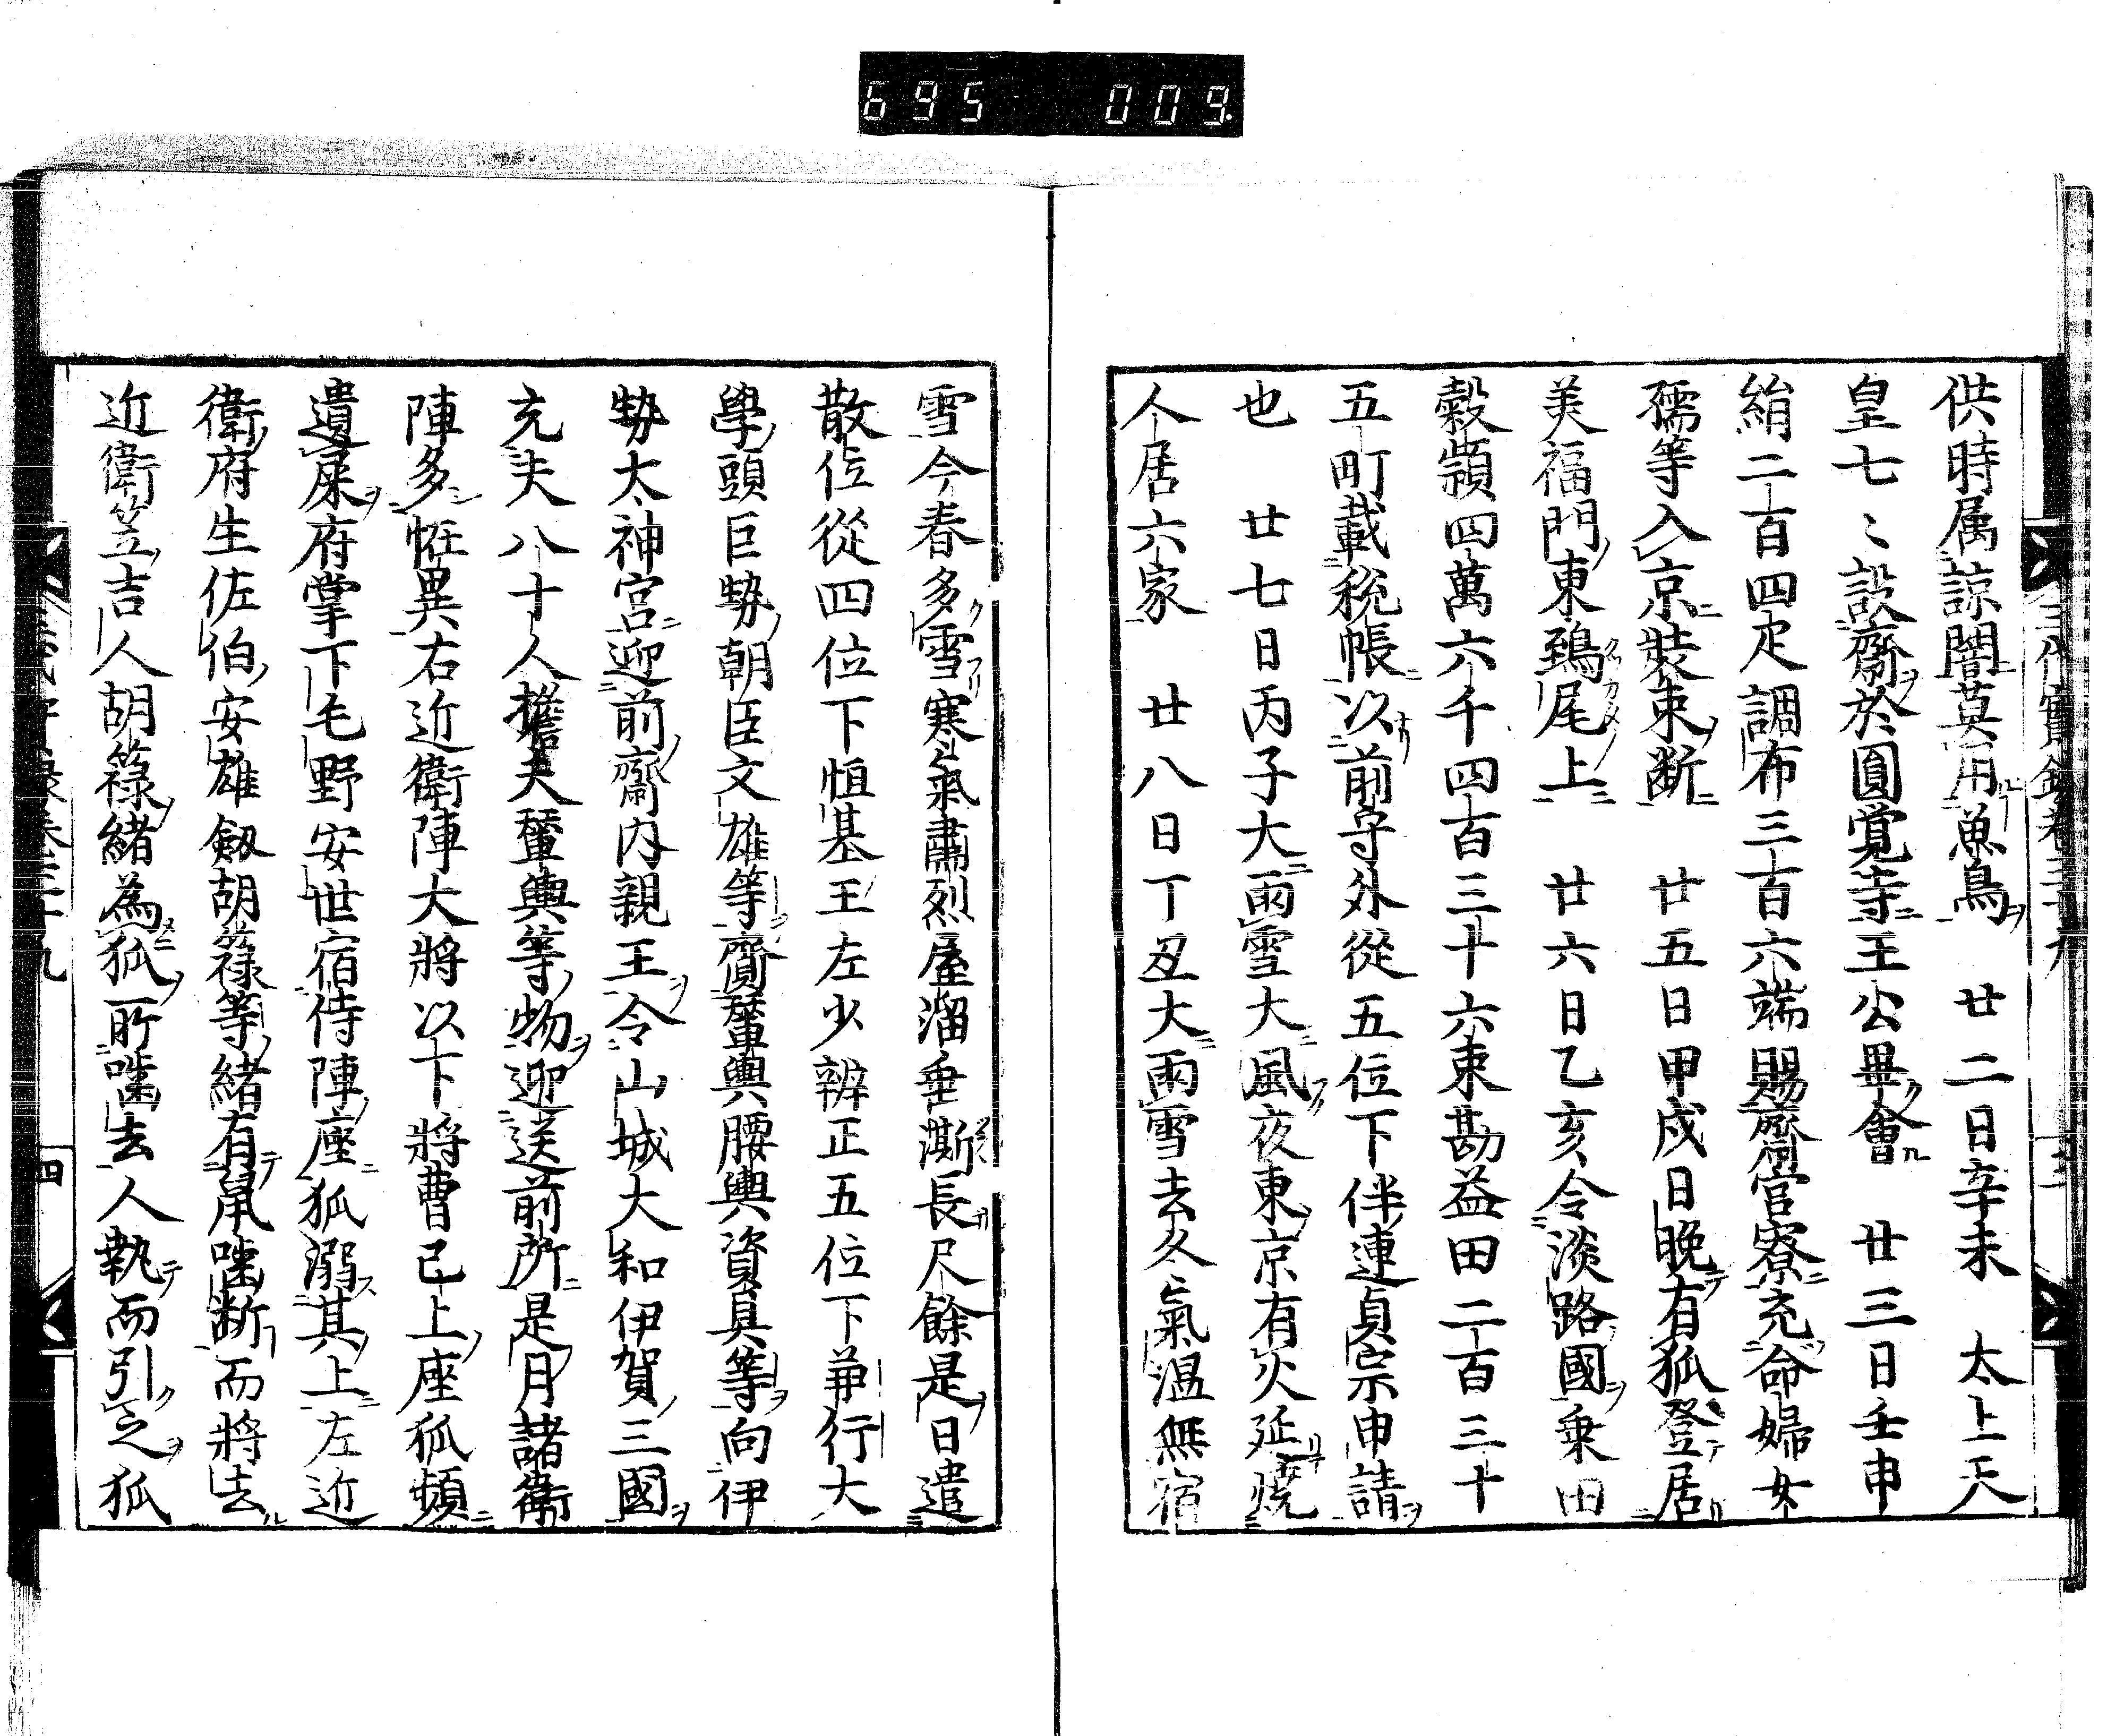 695 009
供時属諒闇莫用魚鳥 廿二日辛未 太上天
皇七々設齋於圓覚寺王公畢會 廿三日壬申
絹二百四疋調布三百六端賜齋宮寮充命婦女
孺等入京裝束断 廿五日甲戌日晚有狐登居
美福門東鵄尾上 廿六日乙亥令淡路國乗田
穀頴四萬六千四百三十六束勘益田二百三十
五町載税帳以前守外從五位下伴連貞宗申請
也 廿七日丙子大雨雪大風夜東京有火延燒
人居六家 廿八日丁丑大雨雪去冬氣温無宿
雪今春多雪寒氣肅烈屋溜垂澌長尺餘是日遣
散位從四位下恒基王左少辨正五位下兼行大
學頭巨勢朝臣文雄等齎輦輿腰輿資具等向伊
勢太神宮迎前齋内親王令山城大和伊賀三國
充夫八十人擔夫輦輿等物迎送前所是月諸衛
陣多恠異右近衛陣大將以下將曹已上座狐頻
遺屎府掌下毛野安世宿侍陣座狐溺其上左近
衛府生佐伯安雄劔胡籙等緒有鼠噛断而將去
近衛笠吉人胡籙緒為狐所噛去人執而引之狐